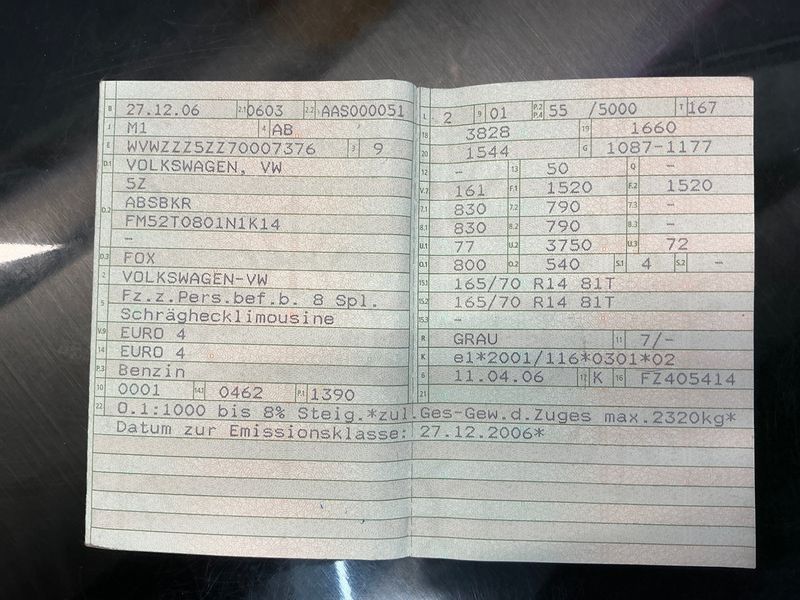 B 27.12.06 2.1 0603 2.2 AAS000051
J M1 4 AB
E WVWZZZ5ZZ70007376 3 9
D.1 VOLKSWAGEN, VW
5Z
D.2 ABSBKR
FM52T0801N1K14
–
D.3 FOX
2 VOLKSWAGEN-VW
5 Fz.z.Pers.bef.b. 8 Spl.
Schräghecklimousine
V.9 EURO 4
14 EURO 4
P.3 Benzin
10 0001 14.1 0462 P.1 1390
L 2 9 01 P.2 P.4 55 /5000 T 167
18 3828 19 1660
20 1544 G 1087-1177
12 – 13 50 Q –
V.7 161 F.1 1520 F.2 1520
7.1 830 7.2 790 7.3 –
8.1 830 8.2 790 8.3 –
U.1 77 U.2 3750 U.3 72
O.1 800 O.2 540 S.1 4 S.2 –
15.1 165/70 R14 81T
15.2 165/70 R14 81T
15.3 –
R GRAU 11 7/-
K e1*2001/116*0301*02
6 11.04.06 17 K 16 FZ405414
21
22 O.1:1000 bis 8% Steig.*zul.Ges-Gew.d.Zuges max.2320kg*
Datum zur Emissionsklasse: 27.12.2006*